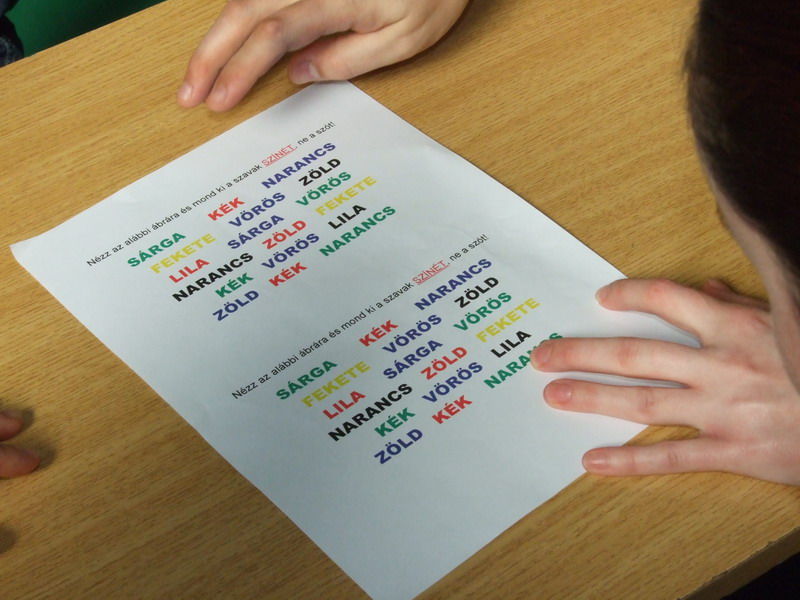 Nézz az alábbi ábrára és mond ki a szavak SZÍNÉT, ne a szót!
SÁRGA KÉK NARANCS
FEKETE VÖRÖS ZÖLD
LILA SÁRGA VÖRÖS
NARANCS ZÖLD FEKETE
KÉK VÖRÖS LILA
ZÖLD KÉK NARANCS
Nézz az alábbi ábrára és mond ki a szavak SZÍNÉT, ne a szót!
SÁRGA KÉK NARANCS
FEKETE VÖRÖS ZÖLD
LILA SÁRGA VÖRÖS
NARANCS ZÖLD FEKETE
KÉK VÖRÖS LILA
ZÖLD KÉK NARANCS